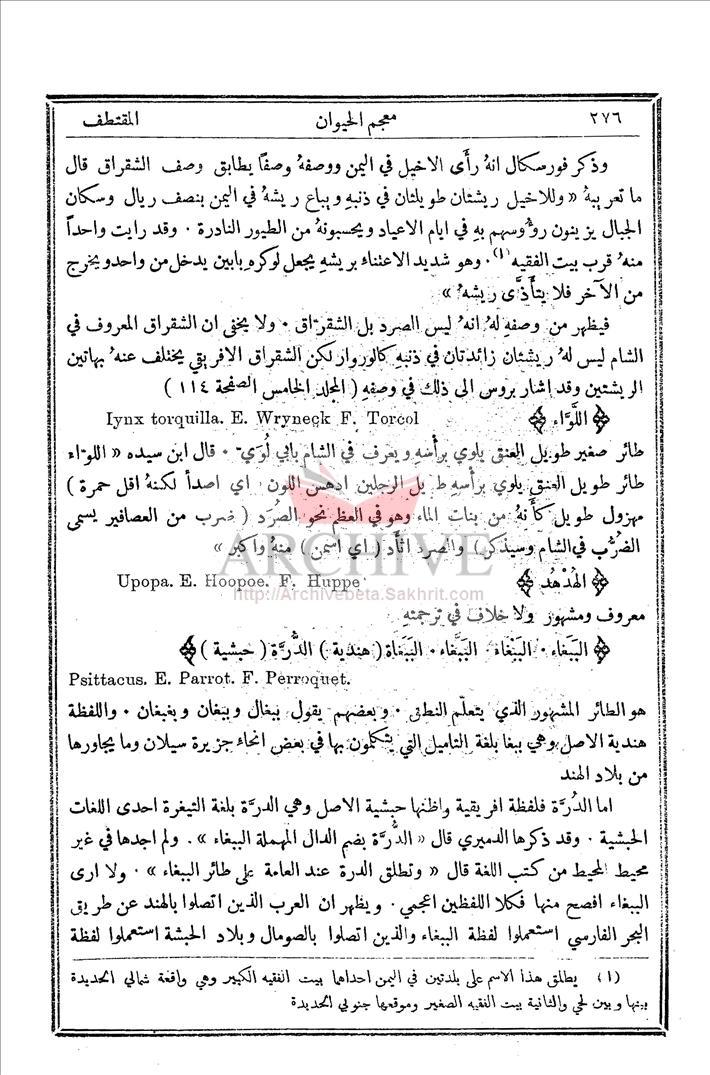 ٢٧٦ معجم الحيوان المقتطف
وذكر فورسكال انهُ رأَى الاخيل في اليمن ووصفهُ وصفًا يطابق وصف الشقراق قال
ما تعريبهُ « وللاخيل ريشتان طويلتان في ذنبهِ ويباع ريشهُ في اليمن بنصف ريال وسكان
الجبال يزينون رؤُوسهم بهِ في ايام الاعياد ويحسبونهُ من الطيور النادرة . وقد رايت واحداً
منهُ قرب بيت الفقيه (١). وهو شديد الاعتناء بريشهِ يجعل لوكرهِ بابين يدخل من واحد ويخرج
من الآخر فلا يتأَذَّى ريشهُ »
فيظهر من وصفهِ لهُ انهُ ليس الصرد بل الشقرّاق . ولا يخفى ان الشقراق المعروف في
الشام ليس لهُ ريشتان زائدتان في ذنبهِ كالوروار لكن الشقراق الافريقي يختلف عنهُ بهاتين
الريشتين وقد اشار بروس الى ذلك في وصفهِ ( المجلد الخامس الصفحة ١١٤ )
﴿ اللَّوَّاء ﴾ Iynx torquilla. E. Wryneck F. Torcol
طائر صغير طويل العنق يلوي برأسهِ ويعرف في الشام بابي لُوَيّ . قال ابن سيده « اللوّاء
طائر طويل العنق يلوي برأسهِ طويل الرجلين ادهس اللون ( اي اصدأ لكنهُ اقل حمرة )
مهزول طويل كأَنهُ من بنات الماء وهو في العظم نحو الصُرَد ( ضرب من العصافير يسمى
الضُرَّب في الشام وسيذكر ) والصرد اثأَد ( اي اسمن ) منهُ واكبر »
﴿ الهُدْهُد ﴾ Upopa. E. Hoopoe. F. Huppe
معروف ومشهور ولا خلاف في ترجمتهِ
﴿ البَبغاء . البَبْغاء . البَبَّغاء . البَبَّغاة ( هندية ) الدُّرَّة ( حبشية ) ﴾
Psittacus. E. Parrot. F. Perroquet.
هو الطائر المشهور الذي يتعلَّم النطق . وبعضهم يقول ببغال وببغان وبغبغان . واللفظة
هندية الاصل وهي ببغا بلغة التاميل التي يتكلمون بها في بعض انحاء جزيرة سيلان وما يجاورها
من بلاد الهند
اما الدُرَّة فلفظة افريقية واظنها حبشية الاصل وهي الدرة بلغة التيغرة احدى اللغات
الحبشية . وقد ذكرها الدميري قال « الدُّرَّة بضم الدال المهملة الببغاء » . ولم اجدها في غير
محيط المحيط من كتب اللغة قال « وتطلق الدرة عند العامة على طائر الببغاء » . ولا ارى
الببغاء افصح منها فكلا اللفظين اعجمي . ويظهر ان العرب الذين اتصلوا بالهند عن طريق
البحر الفارسي استعملوا لفظة الببغاء والذين اتصلوا بالصومال وبلاد الحبشة استعملوا لفظة
(١) يطلق هذا الاسم على بلدتين في اليمن احداهما بيت الفقيه الكبير وهي واقعة شمالي الحديدة
بينها وبين لحي والثانية بيت الفقيه الصغير وموقعها جنوبي الحديدة
ARCHIVE
http://Archivebeta.Sakhrit.com